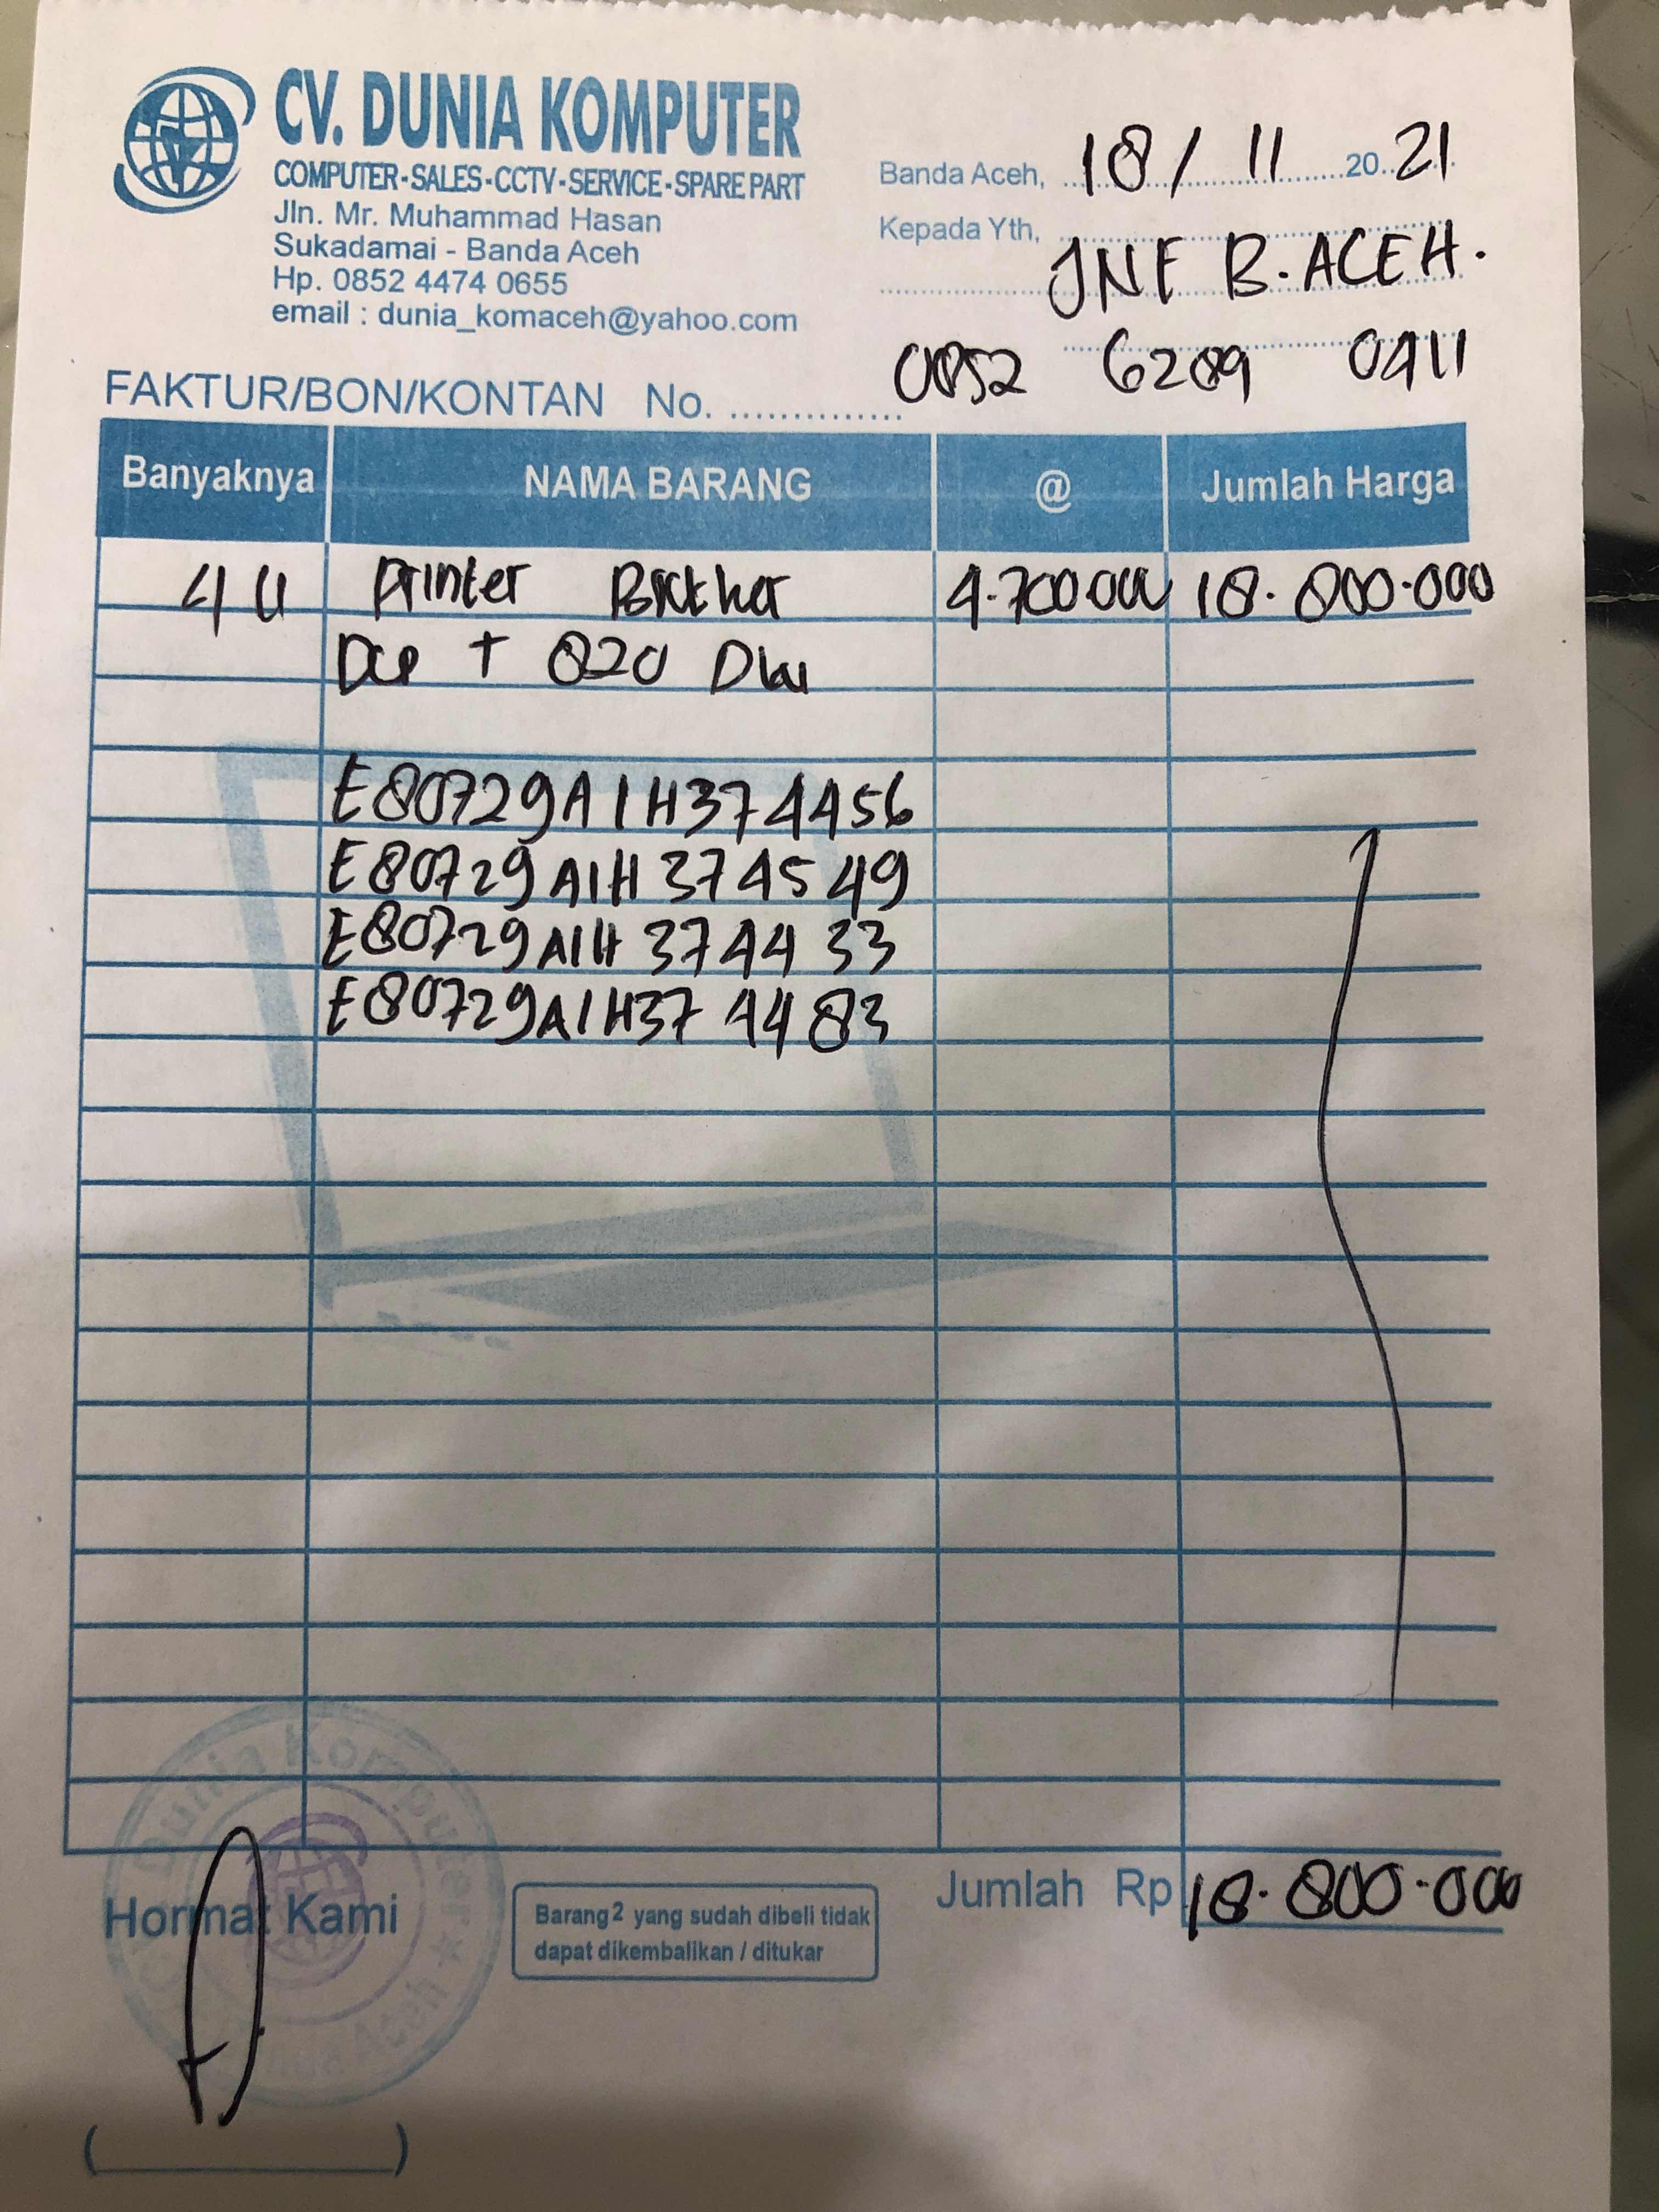 CV. DUNIA KOMPUTER
COMPUTER - SALES - CCTV - SERVICE - SPARE PART
Jln. Mr. Muhammad Hasan
Sukadamai - Banda Aceh
Hp. 0852 4474 0655
email : dunia_komaceh@yahoo.com
Banda Aceh, 18 / 11 20 21
Kepada Yth,
JNE B. ACEH.
0852 6289 0411
FAKTUR/BON/KONTAN No. ...............
Banyaknya NAMA BARANG @ Jumlah Harga
4 U Printer Brother 4.700.000 18.800.000
Dcp T 820 Dw
E80729A1H374456
E80729A1H374549
E80729A1H374433
E80729A1H374483
Jumlah Rp 18.800.000
Hormat Kami
Barang2 yang sudah dibeli tidak
dapat dikembalikan / ditukar
CV. Dunia Komputer
Banda Aceh
( )